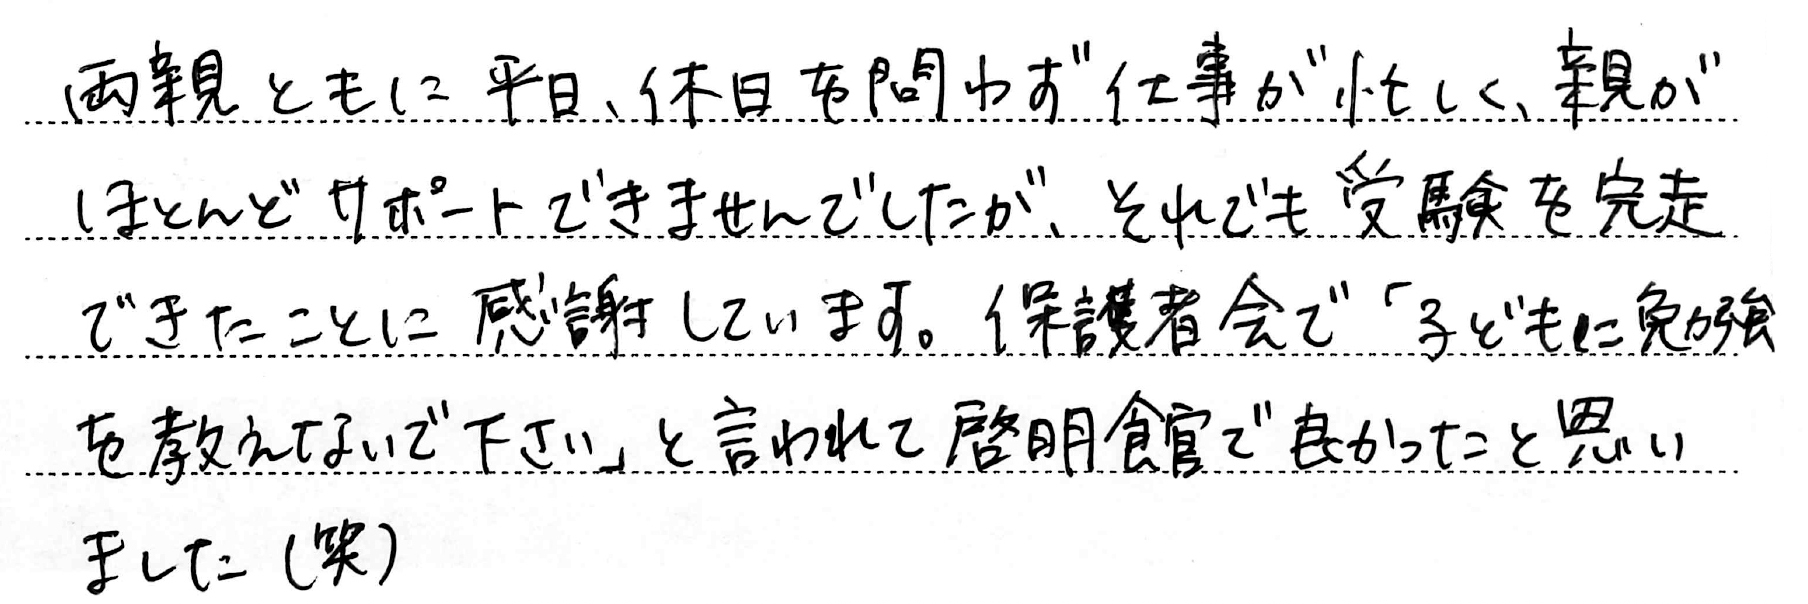 両親ともに平日、休日を問わず仕事が忙しく、親が
ほとんどサポートできませんでしたが、それでも受験を完走
できたことに感謝しています。保護者会で「子どもに勉強
を教えないで下さい」と言われて啓明館で良かったと思い
ました（笑）